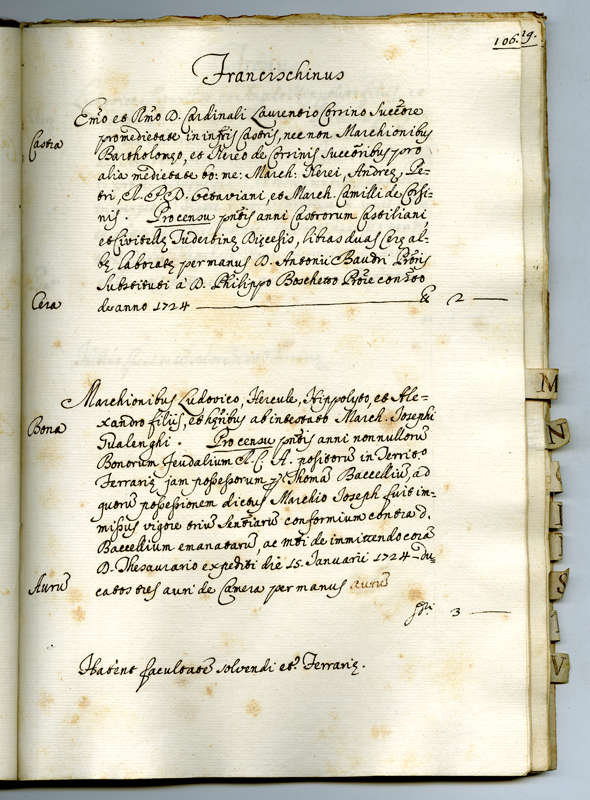 106. 19.
Francischinus
Emo et Rmo D. Cardinali Laurentio Corsino Succore
Castra
pro medietate in infris Castris, nec non Marchionibus
Bartholomeo, et Nereo de Corsinis Succoribus pro
alia medietate bo: me: March: Nerei, Andreę, Pe-
tri, R. P. D. Octaviani, et March. Camilli de Corsi-
nis. Pro censu pntis anni Castrorum Castiliani
et Civitellę Tudertinę Dięcesis, libras duas Cerę al-
bę laboratę per manus D. Antonii Baudri Proris
Substituti à D. Philippo Boschetto Prore
Cera
de anno 1724 — 2 —
Marchionibus Ludovico, Hercule, Hippolyto, et Ale-
xandro filiis, et hęribus ab intestato March. Josephi
Bona
Gualenghi. Pro censu pntis anni nonnullorū
Bonorum feudalium R. C. A. positorū in Territo
Ferrarię jam possessorum ꝑ Thomā Baccelliū, ad
quorū possessionem dictus Marchio Joseph fuit im-
missus vigore triū Sentiarū conformium contra d.
Baccellium emanatarū, ac mti de immittendo corā
D. Thesaurario expediti die 15. Januarii 1724 - du-
Aurū
catos tres auri de Camera per manus aurū
3 —
Habent facultatē solvendi et Ferrarię.
M
N
S
V